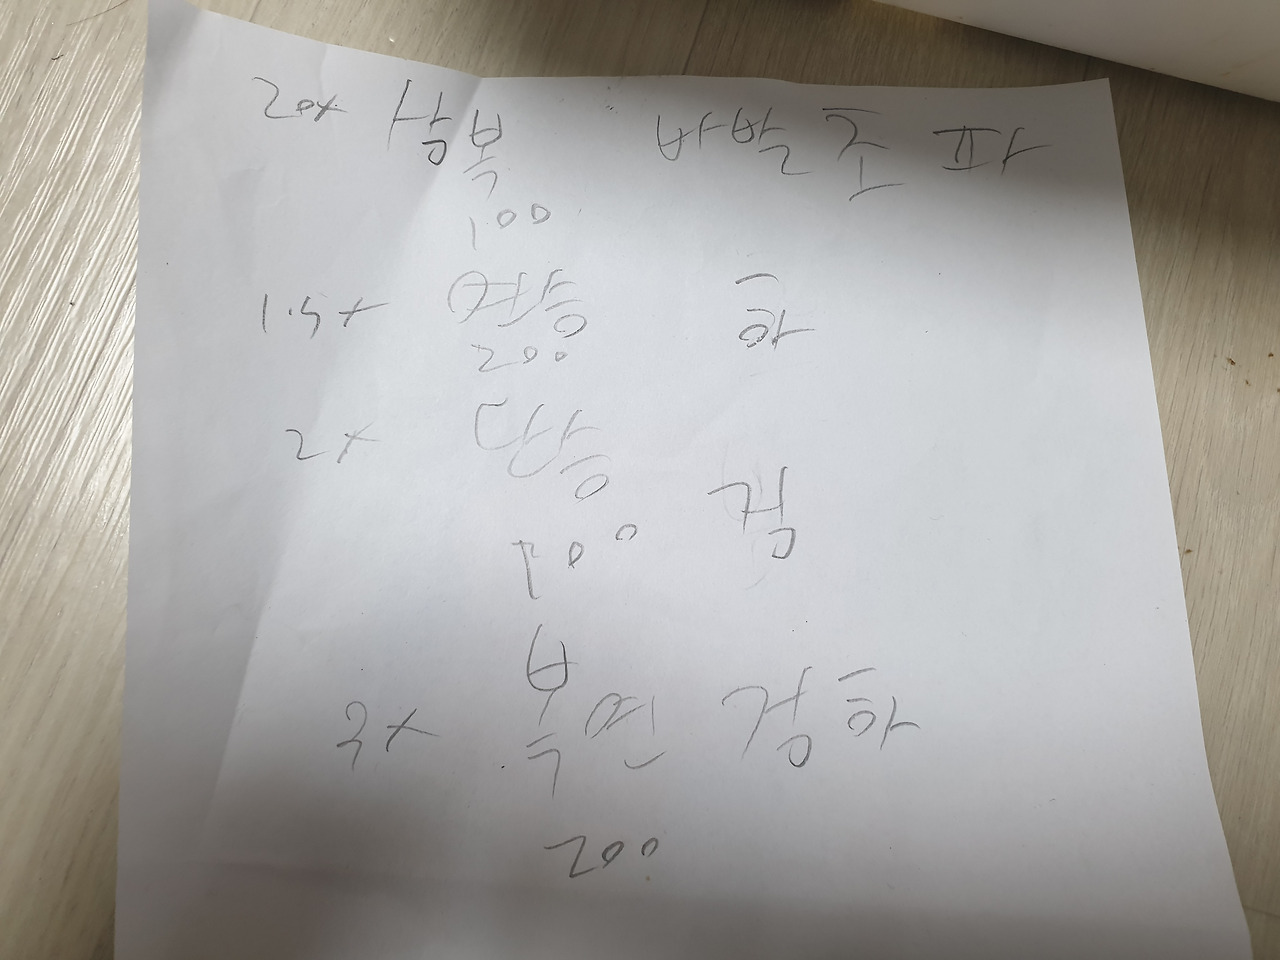 20x 삼복 바발초파
100
1.5x 연승 하
200
2x 단승 검
100
3x 복연 검하
200